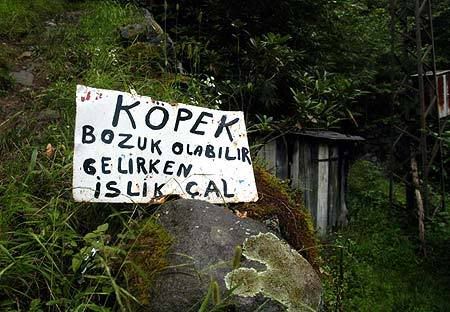 KÖPEK
BOZUK OLABİLİR
GELİRKEN
İSLİK ÇAL